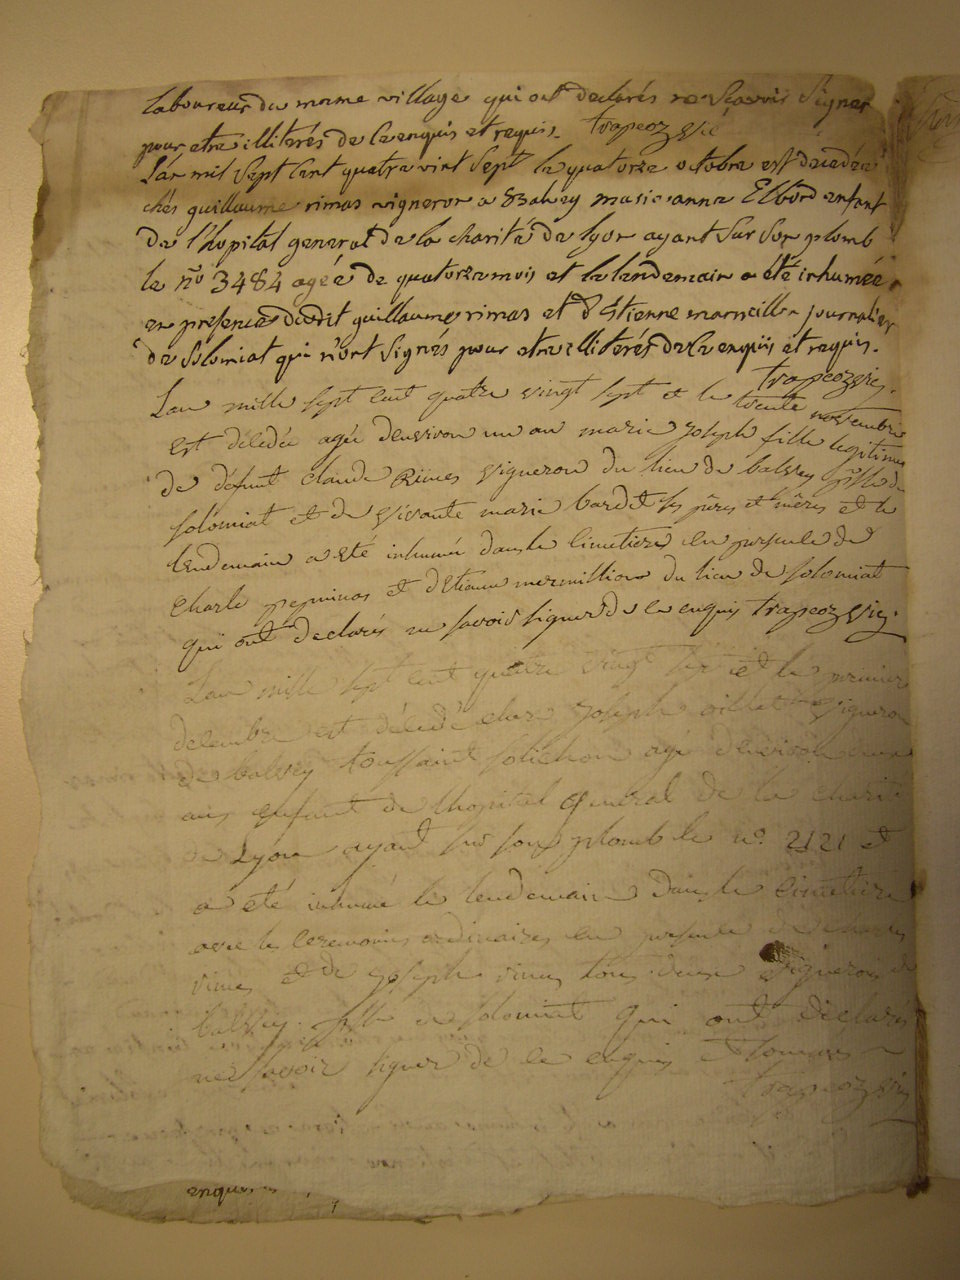 laboureur du mome village qui ont declarés ne Scavoir Signer
pour etre illiterés de ce enquis et requis. trapeoz vic
L'an mil Sept Cent quatre vint Sept le quatorze octobre est décedée
chés guillaume rimas vigneron a Balvey marie anne enfant
De l'hopital general de la charité de lyon ayant Sur Son plomb
le n° 3484 agée de quatorze mois et le lendemain a été inhumée
en presence dudit guillaume rimas et d'Etienne journalier
de Solomiat qui n'ont Signés pour etre illiterés de Ce enquis et requis.
trapeoz vic.
L'an mille sept cent quatre vingt sept et le trente novembre
est décedée agée d'environ un an marie joseph fille legitime
de défunt claude vigneron du lieu de balvey psse de
solomiat et de vivante marie bardet ses pères et mères et le
lendemain a eté inhumée dans le cimetiere en presence de
charle et d'Etienne mermillion du lieu de solomiat
qui ont declarés ne savoir signer de ce enquis trapeoz vic.
L'an mille sept cent quatre vingt sept et le premier
decembre est décedé chez joseph vigneron
de balvey toussaint agé d'environ
ans enfant de lhopital general de la charité
de Lyon ayant sur son plomb le n°. 2121 et
a eté inhumé le lendemain dans le cimetiere
avec les ceremonies ordinaires en presence de charles
et de joseph tous deux vignerons de
balvey psse de solomiat qui ont déclarés
ne savoir signer de ce enquis et
trapeoz vic